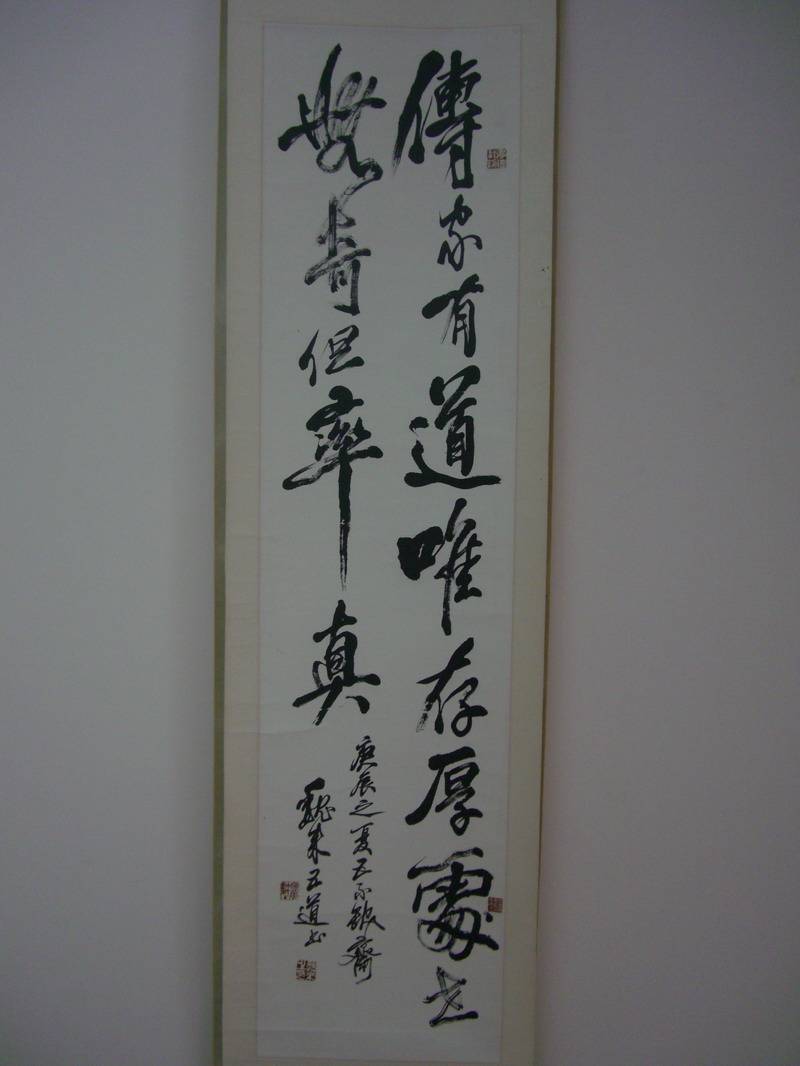 傳家有道唯存厚處世
無奇但率真
庚辰之夏五不銀齋
魏来五道书